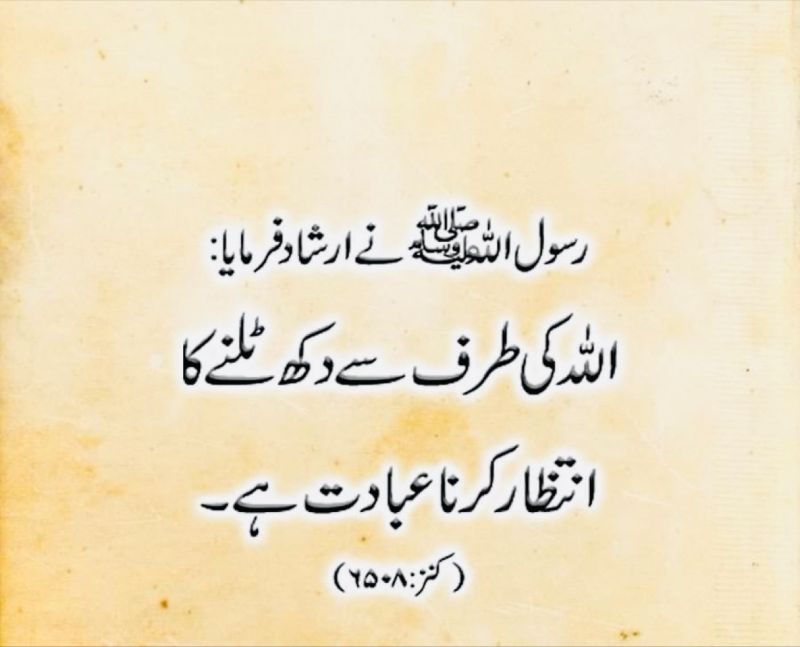 رسول اللہ ﷺ نے ارشاد فرمایا:
اللہ کی طرف سے دکھ ٹلنے کا
انتظار کرنا عبادت ہے۔
(کنز:۶۵۰۸)